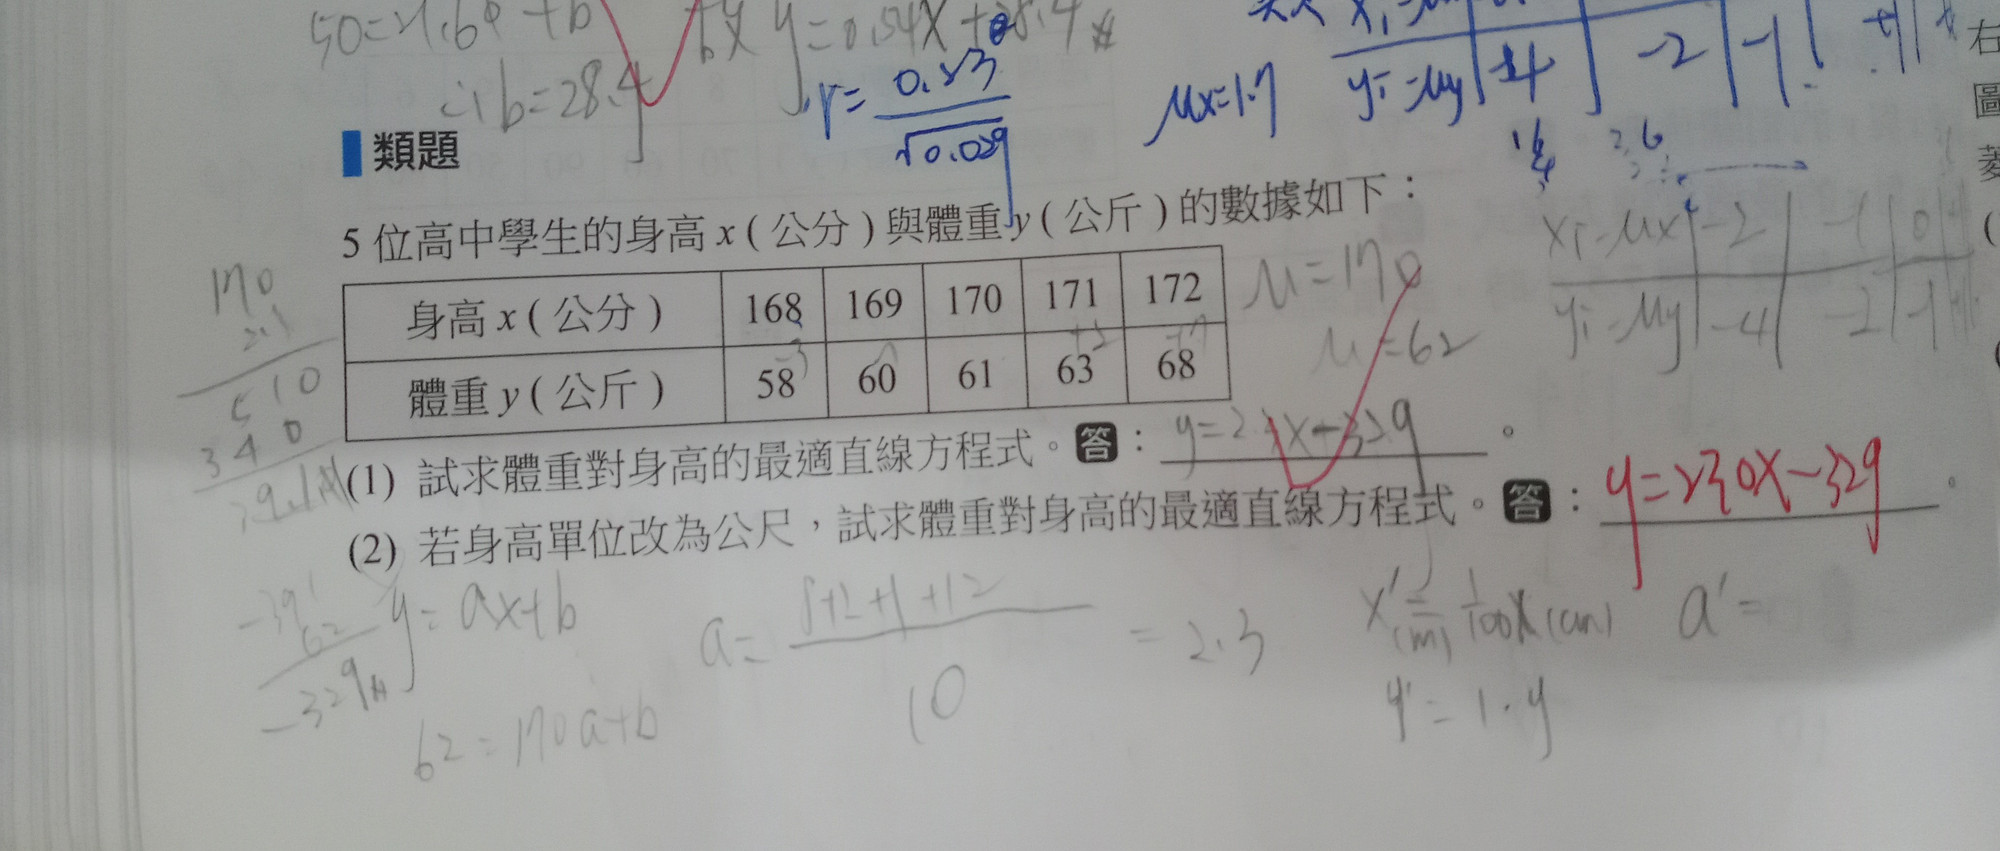 50=21.6 +b
y=0.54x+28.4
∴b=28.4
r=0.23/√0.029
μx=1.7
yi-μy 4 -2 -1
類題
5 位高中學生的身高 x ( 公分 ) 與體重 y ( 公斤 ) 的數據如下：
身高 x ( 公分 ) 168 169 170 171 172
體重 y ( 公斤 ) 58 60 61 63 68
μ=170
μ=62
xi-μx -2 -1 0
yi-μy -4 -2 -1
170
510
340
(1) 試求體重對身高的最適直線方程式。答：y=2.3x-329。
(2) 若身高單位改為公尺，試求體重對身高的最適直線方程式。答：y=230x-329。
-391
62
-329
y=ax+b
a=8+2+1+12/10 =2.3
62=170a+b
x'(m)=1/100x(cm)
y'=1·y
a'=
右
圖
菱